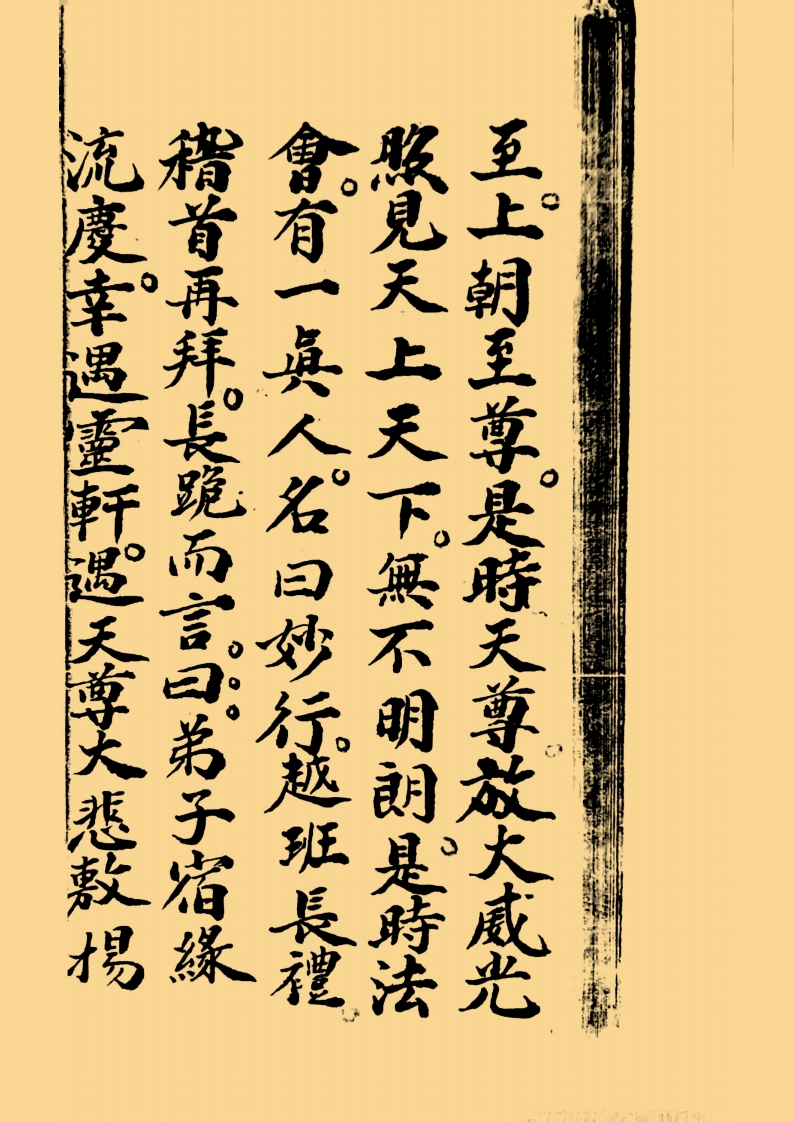 至上。朝至尊。是時天尊。放大威光
照見天上天下。無不明朗。是時法
會。有一眞人。名曰妙行。越班長禮。
稽首再拜。長跪而言。曰。。弟子宿緣
流慶。幸遇靈軒。遇天尊大悲敷揚